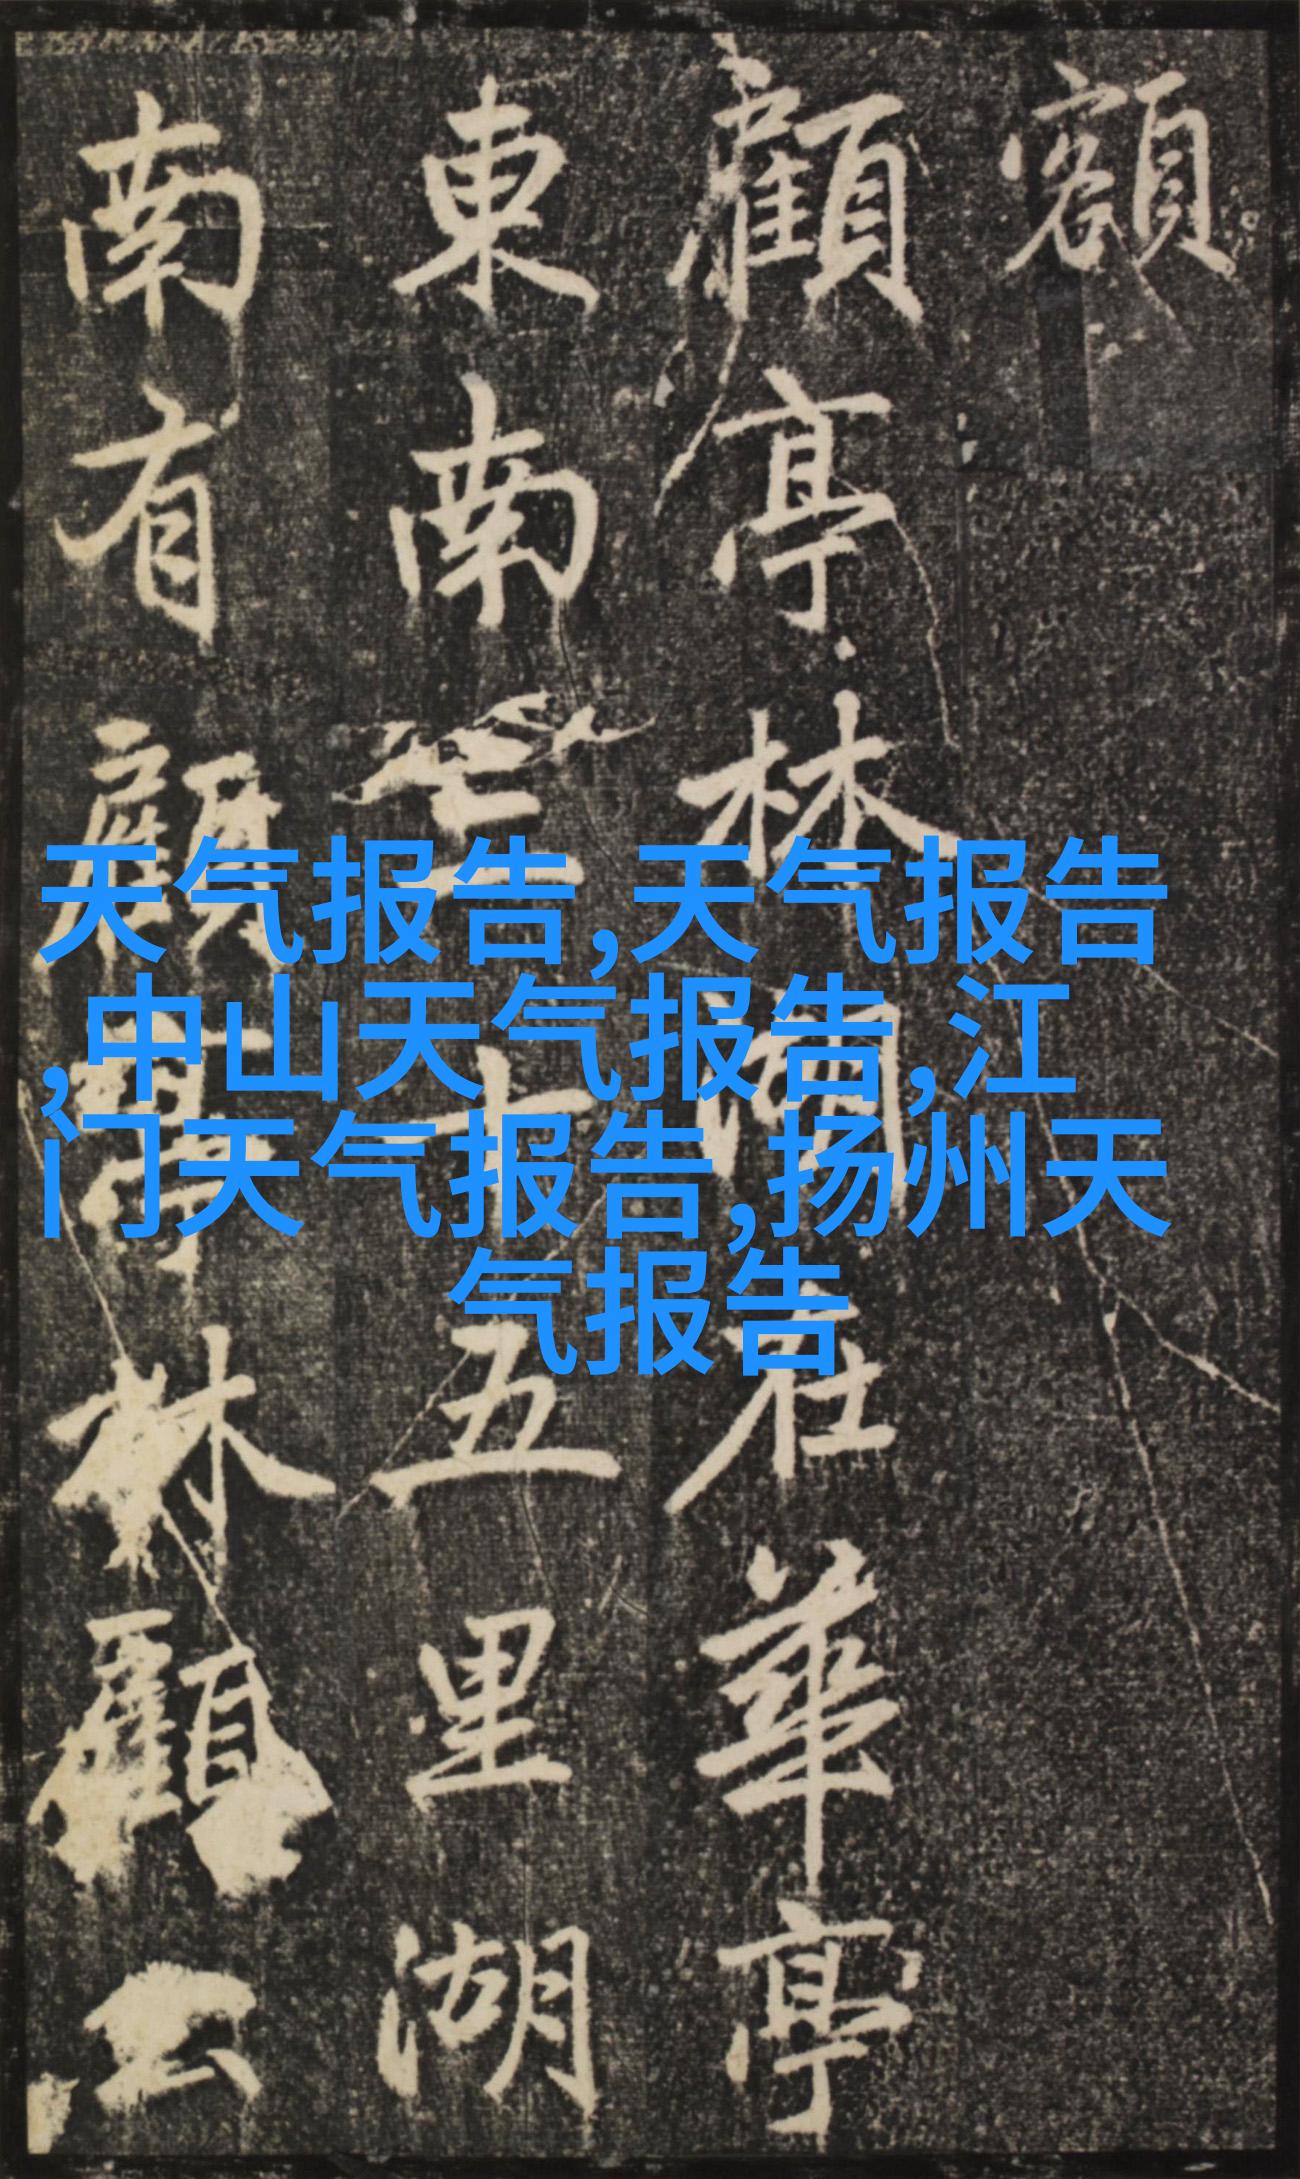 額
顧亭林湖在華亭
東南三十五里湖
南有顧亭林顧公
天气报告,天气报告
,中山天气报告,江
门天气报告,扬州天
气报告